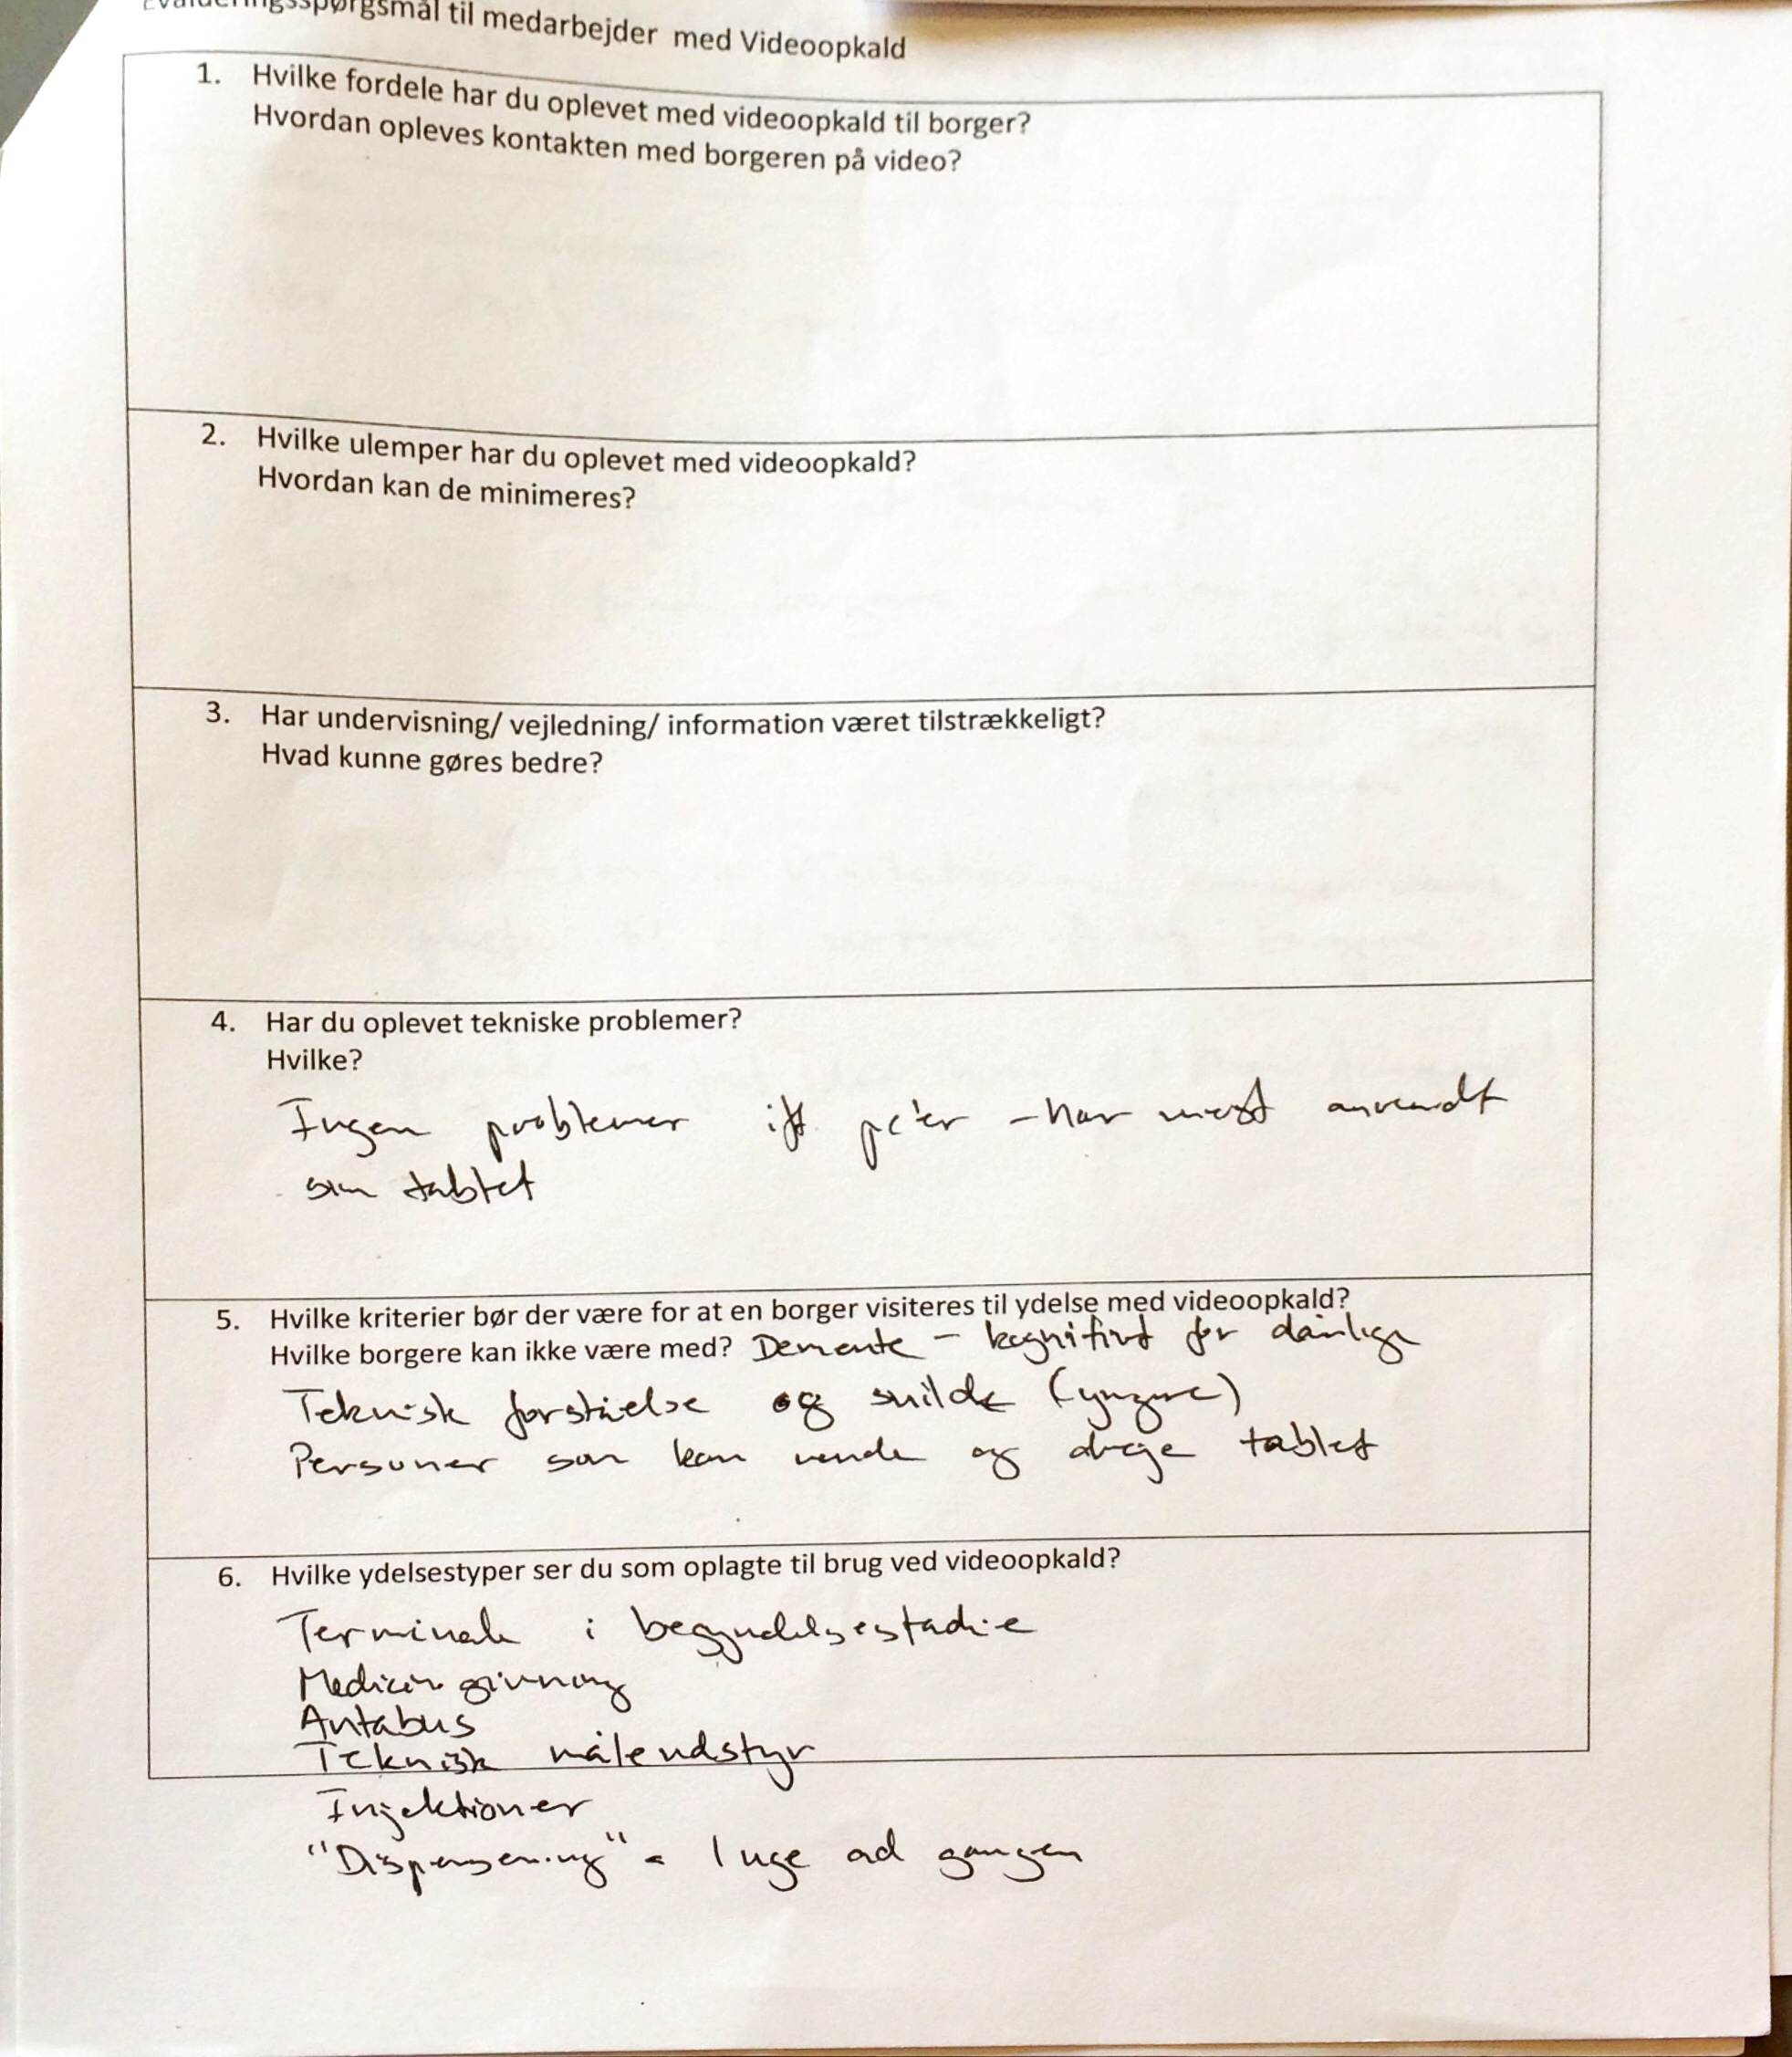 Evalueringsspørgsmål til medarbejder med Videoopkald
1. Hvilke fordele har du oplevet med videoopkald til borger?
Hvordan opleves kontakten med borgeren på video?
2. Hvilke ulemper har du oplevet med videoopkald?
Hvordan kan de minimeres?
3. Har undervisning/ vejledning/ information været tilstrækkeligt?
Hvad kunne gøres bedre?
4. Har du oplevet tekniske problemer?
Hvilke?
Ingen problemer ift pc'er - har mest anvendt
som tablet
5. Hvilke kriterier bør der være for at en borger visiteres til ydelse med videoopkald?
Hvilke borgere kan ikke være med? Demente - kognitivt for dårlige
Teknisk forståelse og snilde (yngre)
Personer som kan vende og dreje tablet
6. Hvilke ydelsestyper ser du som oplagte til brug ved videoopkald?
Terminale i begyndelsesstadie
Medicin givning
Antabus
Teknisk måleudstyr
Injektioner
"Dispensering" = 1 uge ad gangen